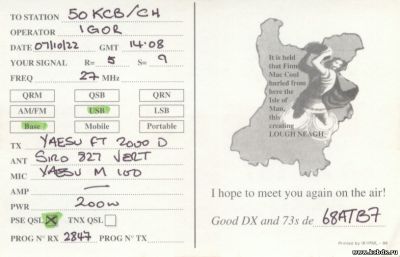 TO STATION 50 KCB/CH
OPERATOR IGOR
DATE 07/10/22 GMT 14.08
YOUR SIGNAL R= 5 S= 9
FREQ 27 MHz
QRM QSB QRN
AM/FM USB LSB
Base Mobile Portable
TX YAESU FT 2000 D
ANT SIRO 827 VERT
MIC YAESU M 100
AMP —
PWR 200W
PSE QSL X TNX QSL
PROG Nº RX 2847 PROG Nº TX
It is held
that Finn
Mac Coul
hurled from
here the
Isle of
Man,
this
creating
LOUGH NEAGH.
I hope to meet you again on the air!
Good DX and 73s de 68ATB7
Printed by
www.hsbdx.ru